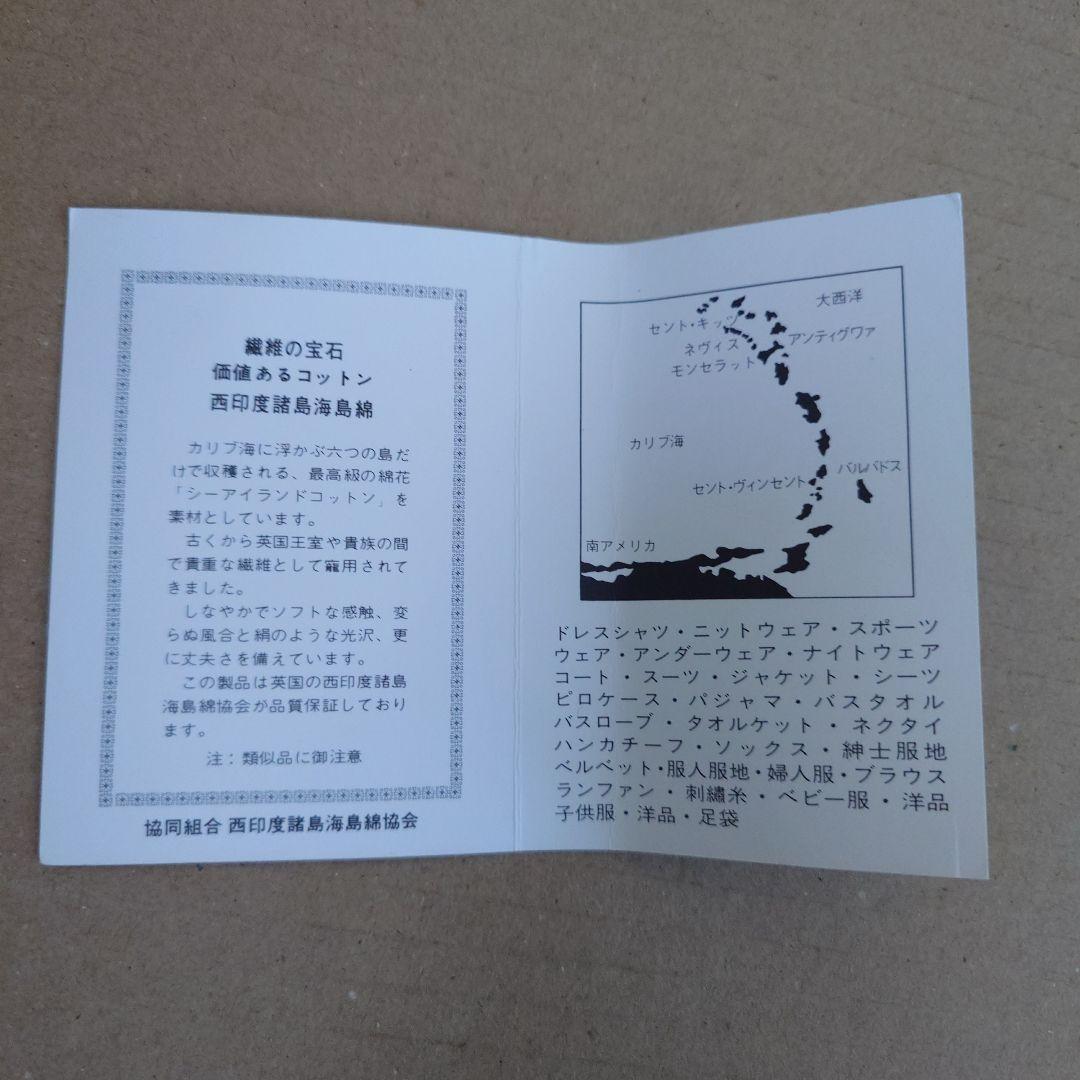 繊維の宝石
価値あるコットン
西印度諸島海島綿
カリブ海に浮かぶ六つの島だ
けで収穫される、最高級の綿花
「シーアイランドコットン」を
素材としています。
古くから英国王室や貴族の間
で貴重な繊維として寵用されて
きました。
しなやかでソフトな感触、変
らぬ風合と絹のような光沢、更
に丈夫さを備えています。
この製品は英国の西印度諸島
海島綿協会が品質保証しており
ます。
注：類似品に御注意
協同組合 西印度諸島海島綿協会
大西洋
セント・キッツ
アンティグワァ
ネヴィス
モンセラット
カリブ海
バルバドス
セント・ヴィンセント
南アメリカ
ドレスシャツ・ニットウェア・スポーツ
ウェア・アンダーウェア・ナイトウェア
コート・スーツ・ジャケット・シーツ
ピロケース・パジャマ・バスタオル
バスローブ・タオルケット・ネクタイ
ハンカチーフ・ソックス・紳士服地
ベルベット・服人服地・婦人服・ブラウス
ランファン・刺繡糸・ベビー服・洋品
子供服・洋品・足袋